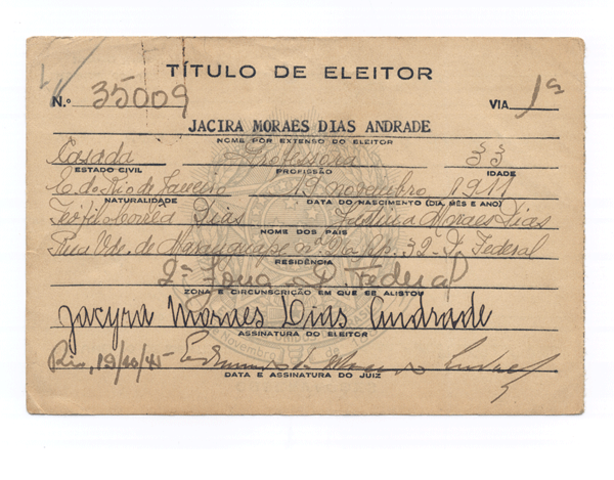 TÍTULO DE ELEITOR
N.º 35009 VIA 1ª
JACIRA MORAES DIAS ANDRADE
NOME POR EXTENSO DO ELEITOR
Casada Professora 33
ESTADO CIVIL PROFISSÃO IDADE
E. do Rio de Janeiro 19 novembro 1911
NATURALIDADE DATA DO NASCIMENTO (DIA, MÊS E ANO)
Teófilo Corrêa Dias Moraes Dias
NOME DOS PAIS
Rua Vde. de Maranguape Ap. 32 - D. Federal
RESIDÊNCIA
2ª Zona D Federal
ZONA E CIRCUNSCRIÇÃO EM QUE SE ALISTOU
Jacyra Moraes Dias Andrade
ASSINATURA DO ELEITOR
Rio, 19/10/45
DATA E ASSINATURA DO JUIZ